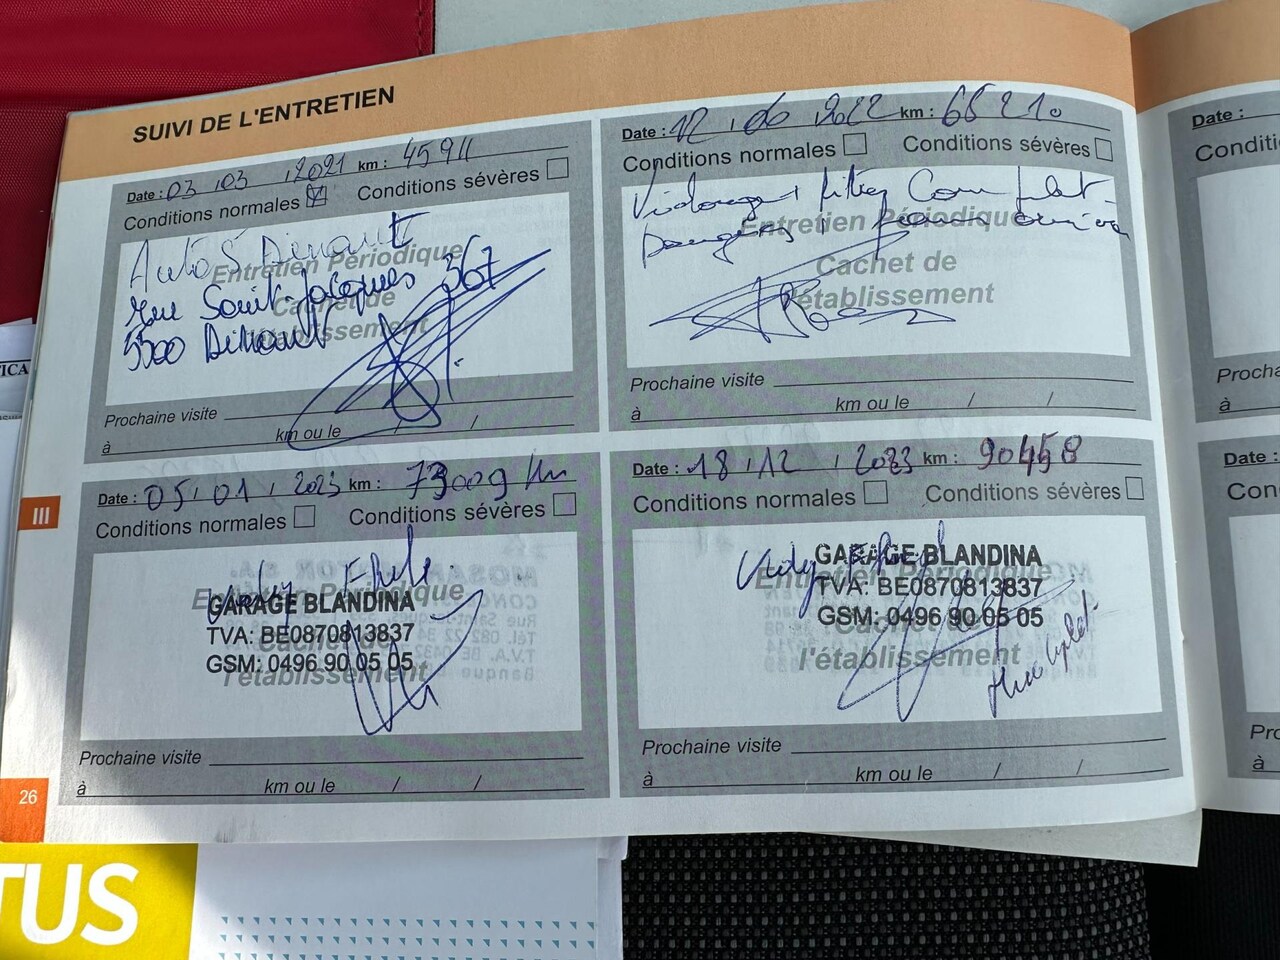 SUIVI DE L'ENTRETIEN
Date : 03 / 03 / 2021 km : 45911
Conditions normales Conditions sévères
Entretien Périodique
Cachet de
l'établissement
Auto S Dinant
Rue Saint-Jacques 367
5500 Dinant
Prochaine visite
à km ou le / /
Date : 12 / 06 / 2022 km : 65210
Conditions normales Conditions sévères
Entretien Périodique
Cachet de
l'établissement
Vidange + filtres Complet
Prochaine visite
à km ou le / /
Date : 05 / 01 / 2023 km : 73009 km
Conditions normales Conditions sévères
Entretien Périodique
Cachet de
l'établissement
GARAGE BLANDINA
TVA: BE0870813837
GSM: 0496 90 05 05
Prochaine visite
à km ou le / /
Date : 18 / 12 / 2023 km : 90458
Conditions normales Conditions sévères
Entretien Périodique
Cachet de
l'établissement
GARAGE BLANDINA
TVA: BE0870813837
GSM: 0496 90 05 05
Prochaine visite
à km ou le / /
III
26
TUS
ICA
Date :
Conditi
Procha
à
Date :
Con
Prc
à